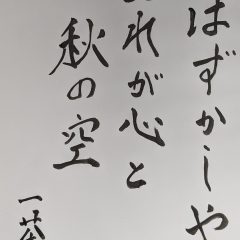 はずかしや
れが心と
秋の空
一茶